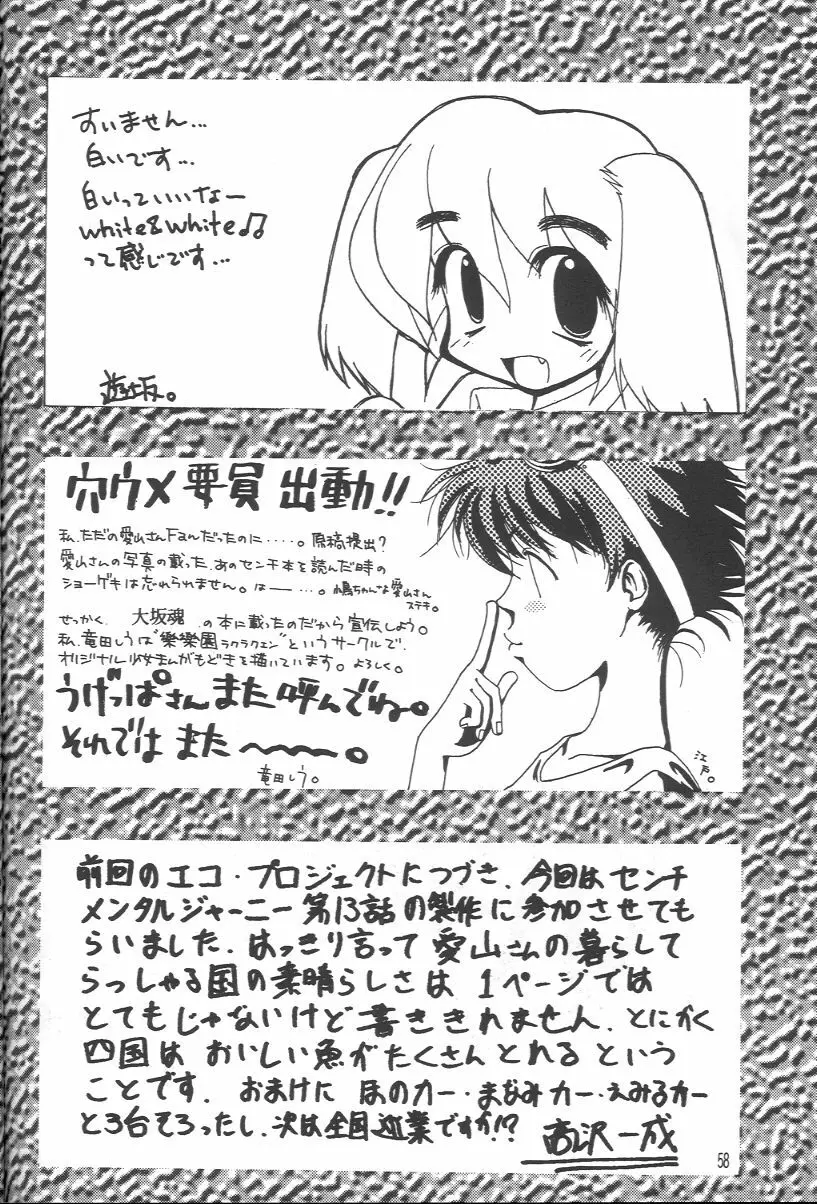 すいません…
白いです…
白いっていいなー
white&white♫
って感じです…
遊坂。
穴ウメ要員 出動!!
私、ただの愛山さんFanだったのに……。原稿提出?
愛山さんの写真の載った、あのセンチ本を読んだ時の
ショーゲキは忘れられません。はー……。
愛山さん
ステキ。
せっかく 大坂魂 の本に載ったのだから宣伝しよう。
私、竜田しうは"樂樂園ラクラクエン"というサークルで
オリジナル少女まんがもどきを描いています。よろしく。
うげっぱさん また 呼んでね。
それでは また 〜〜〜。
竜田しう。
江戸。
前回のエコ・プロジェクトにつづき、今回はセンチ
メンタルジャーニー第13話の製作に参加させても
らいました。はっきり言って愛山さんの暮らして
らっしゃる国の素晴らしさは 1ページでは
とてもじゃないけど書ききれません。とにかく
四国は おいしい魚がたくさん とれる という
ことです。 おまけに ほのカー・まなみカー・えみるカー
と3台そろったし、次は全国巡業ですか!?
高沢一成
58